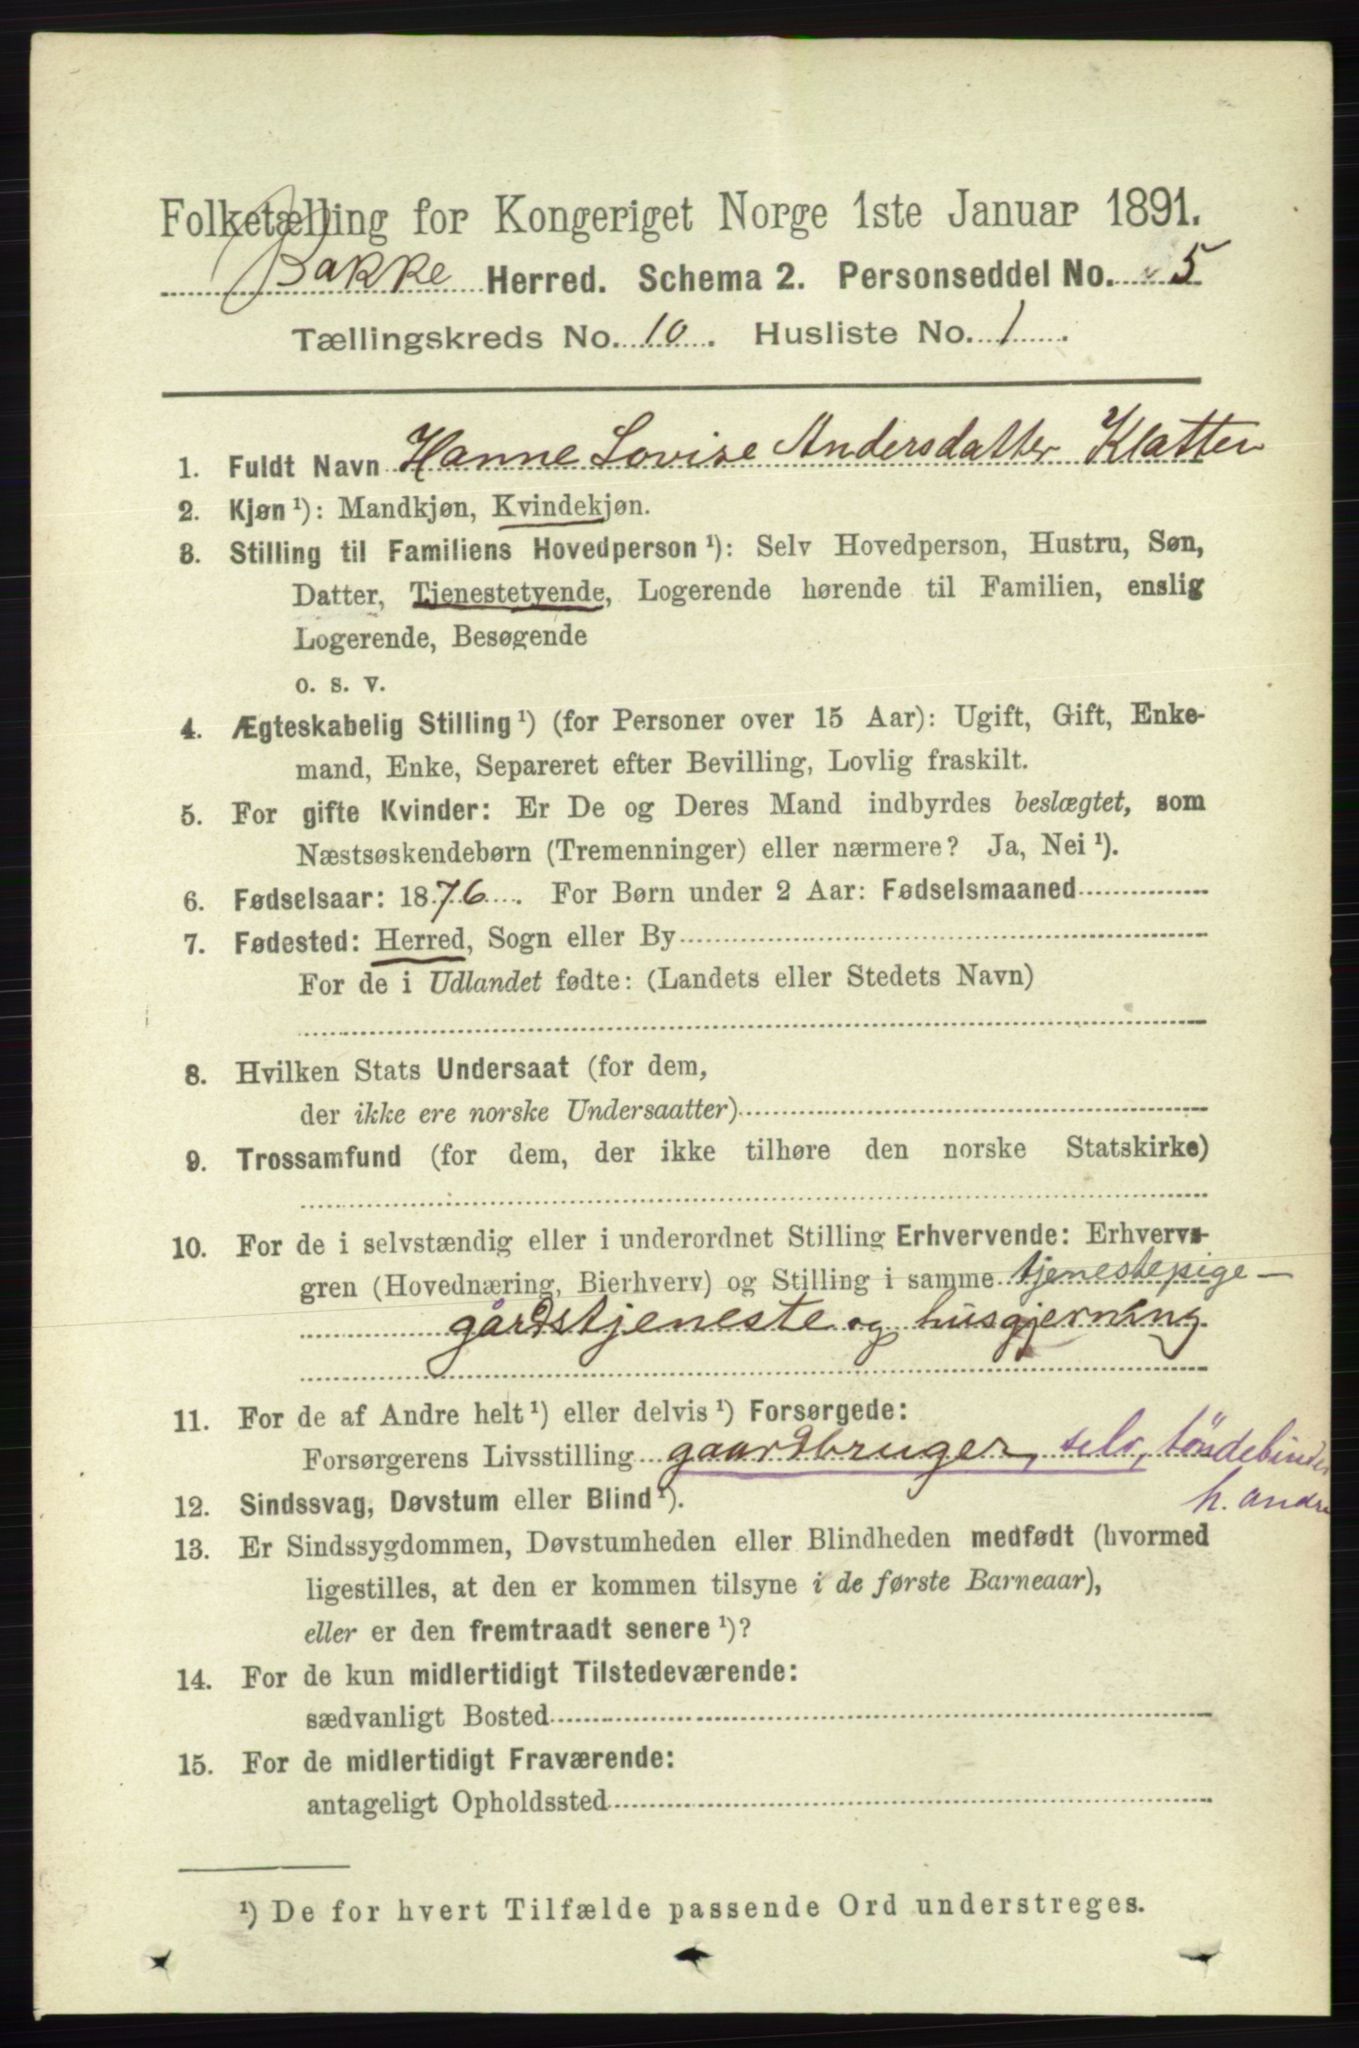 Folketælling for Kongeriget Norge 1ste Januar 1891.
Bakke Herred. Schema 2. Personseddel No. 5
Tællingskreds No. 10. Husliste No. 1.
1. Fuldt Navn Hanne Lovise Andersdatter Klatten
2. Kjøn ¹): Mandkjøn, Kvindekjøn.
3. Stilling til Familiens Hovedperson ¹): Selv Hovedperson, Hustru, Søn,
Datter, Tjenestetyende, Logerende hørende til Familien, enslig
Logerende, Besøgende
o. s. v.
4. Ægteskabelig Stilling ¹) (for Personer over 15 Aar): Ugift, Gift, Enke-
mand, Enke, Separeret efter Bevilling, Lovlig fraskilt.
5. For gifte Kvinder: Er De og Deres Mand indbyrdes beslægtet, som
Næstsøskendebørn (Tremenninger) eller nærmere? Ja, Nei ¹).
6. Fødselsaar: 1876. For Børn under 2 Aar: Fødselsmaaned
7. Fødested: Herred, Sogn eller By
For de i Udlandet fødte: (Landets eller Stedets Navn)
8. Hvilken Stats Undersaat (for dem,
der ikke ere norske Undersaatter)
9. Trossamfund (for dem, der ikke tilhøre den norske Statskirke)
10. For de i selvstændig eller i underordnet Stilling Erhvervende: Erhvervs-
gren (Hovednæring, Bierhverv) og Stilling i samme tjenestepige -
gårdstjeneste og husgjerning
11. For de af Andre helt ¹) eller delvis ¹) Forsørgede:
Forsørgerens Livsstilling gaardbruger, selv, töndebinder
h. andre
12. Sindssvag, Døvstum eller Blind ¹).
13. Er Sindssygdommen, Døvstumheden eller Blindheden medfødt (hvormed
ligestilles, at den er kommen tilsyne i de første Barneaar),
eller er den fremtraadt senere ¹)?
14. For de kun midlertidigt Tilstedeværende:
sædvanligt Bosted
15. For de midlertidigt Fraværende:
antageligt Opholdssted
¹) De for hvert Tilfælde passende Ord understreges.